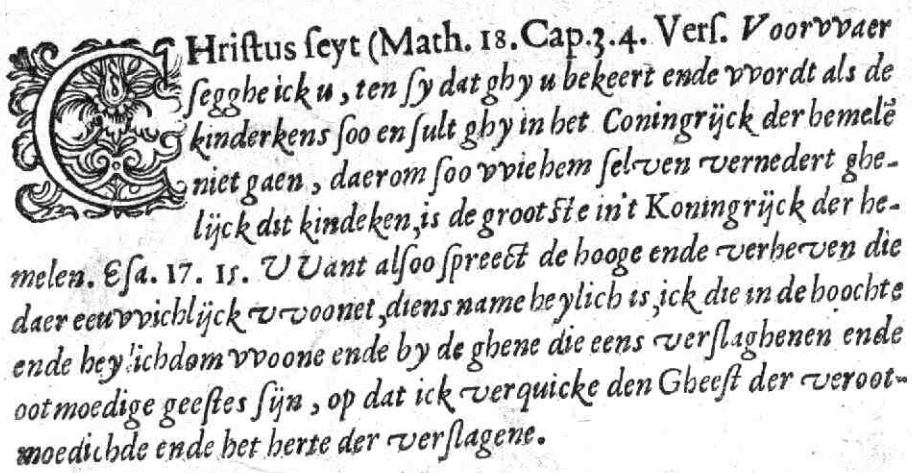 CHristus seyt (Math. 18. Cap. 3. 4. Vers. Voorvvaer
segghe ick u, ten sy dat ghy u bekeert ende vvordt als de
kinderkens soo en sult ghy in het Coningrijck der hemelẽ
niet gaen, daerom soo vvie hem selven vernedert ghe-
lijck dit kindeken, is de grootste in't Koningrijck der he-
melen. Esa. 17. 15. VVant alsoo spreect de hooge ende verheven die
daer eeuvvichlijck vvoonet, diens name heylich is, ick die in de hoochte
ende heylichdom vvoone ende by de ghene die eens verslaghenen ende
ootmoedige geestes sijn, op dat ick verquicke den Gheest der veroot-
moedichde ende het herte der verslagene.